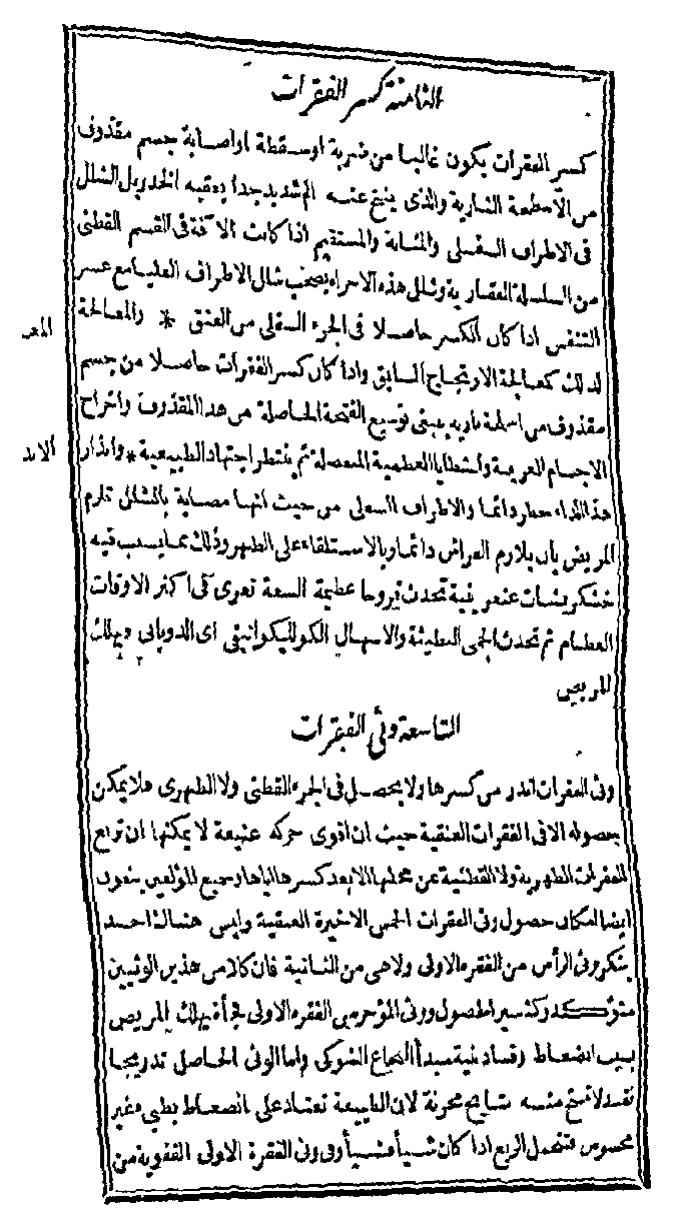 الثامنة كسر الفقرات
كسر الفقرات يكون غالبا من ضربة او سقطة او اصابة جسم مقذوف
من الاسلحة النارية والذى ينتج عنه الم شديد جدا يعقبه الخدر بل الشلل
فى الاطراف السفلى والمثانة والمستقيم اذا كانت الآفة فى القسم القطنى
من السلسلة الفقارية وشلل هذه الاجزاء يصحب شلل الاطراف العليا مع عسر
التنفس اذا كان الكسر حاصلا فى الجزء السفلى من العنق * والمعالجة
المعـ
لذلك كمعالجة الارتجاج السابق واذا كان كسر الفقرات حاصلا من جسم
مقذوف من اسلحة نارية ينبغى توسيع الفتحة الحاصلة من هذا المقذوف واخراج
الاجسام الغريبة والشظايا العظمية المنفصلة ثم ينتظر اجتهاد الطبيعة * وانذار
الانذ
هذا الداء خطر دائما والاطراف السفلى من حيث انها مصابة بالشلل تلزم
المريض بان يلازم الفراش دائما وبالاستلقاء على الظهر وذلك مما يسبب فيه
خشكريشات عنغرينية تحدث قروحا عظيمة السعة تعرى فى اكثر الاوقات
العظام ثم تحدث الحمى البطيئة والاسهال الكولليكواتيفى اى الذوبانى ويهلك
المريض
التاسعة وثى الفقرات
وثى الفقرات اندر من كسرها ولا يحصل فى الجزء القطنى ولا الظهرى فلا يمكن
حصوله الا فى الفقرات العنقية حيث ان اقوى حركة عنيفة لا يمكنها ان تزيع
الفقرات الظهرية ولا القطنية عن محلها الا بعد كسرها اياها وجميع المؤلفين ينفون
ايضا امكان حصول وثى الفقرات الخمس الاخيرة العنقية وليس هناك احد
ينكر وثى الرأس من الفقرة الاولى ولا هى من الثانية فان كلا من هذين الوثيين
متؤكد وكثير الحصول ووثى المؤخر من الفقرة الاولى فجأة يهلك المريض
بسبب انضغاط وفساد بنية مبدأ النخاع الشوكى واما الوثى الحاصل تدريجا
فقد لا تنتج منه نتايج محزنة لان الطبيعة تعتاد على انضغاط بطىء غير
محسوس فتتحمل الرفع اذا كان شيأ فشيأ وفى وثى الفقرة الاولى القفوية من